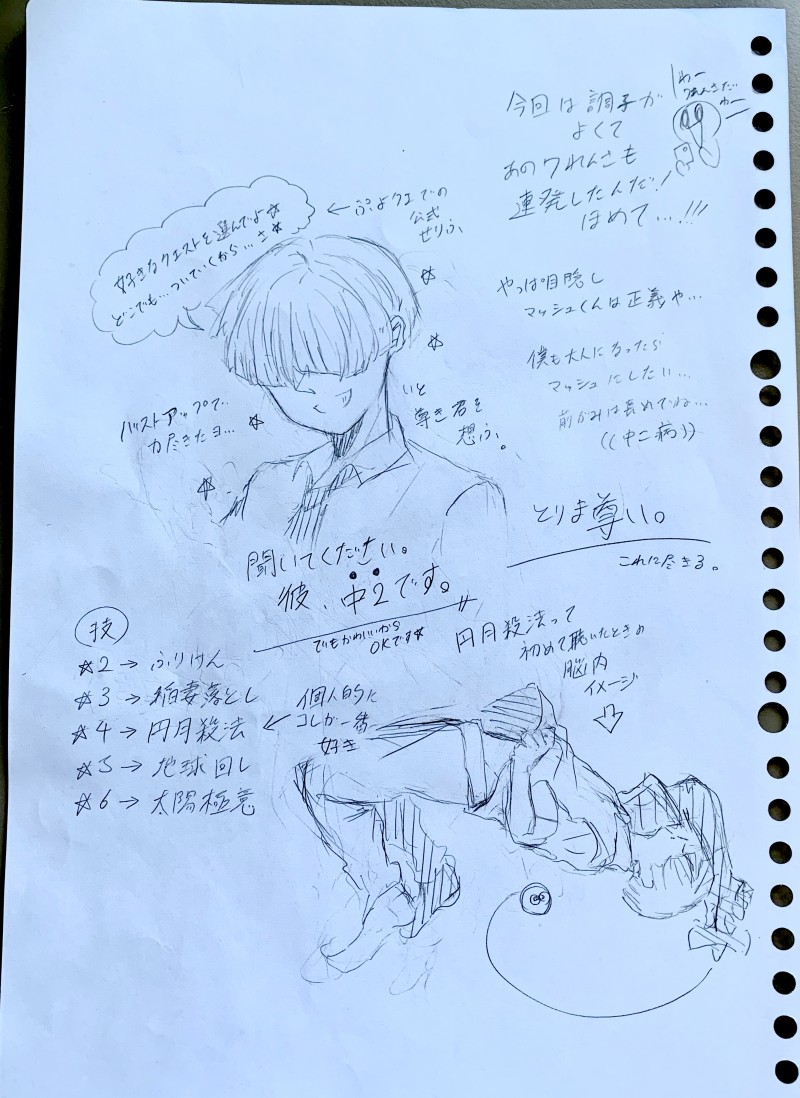 わー
つれんさだ
わー
今回は調子が
よくて
あの7れんさも
連発したんだ!
ほめて...!!!
好きなクエストを選んでよ☆
どこでも...ついていくから...さ☆
← ぷよクエでの
公式
せりふ
やっぱ目隠し
マッシュくんは正義や...
僕も大人になったら
マッシュにしたい...
前がみは長めでね...
((中二病))
バストアップで
力尽きたヨ...
いと
尊き君を
想ふ。
とりま尊い。
これに尽きる。
聞いてください。
彼、中2です。
でもかわいいから
OKです☆
技
☆2→ふりけん
☆3→稲妻落とし
☆4→円月殺法
☆5→地球回し
☆6→太陽極意
← 個人的に
コレが一番
好き
円月殺法って
初めて聴いたときの
脳内
イメージ